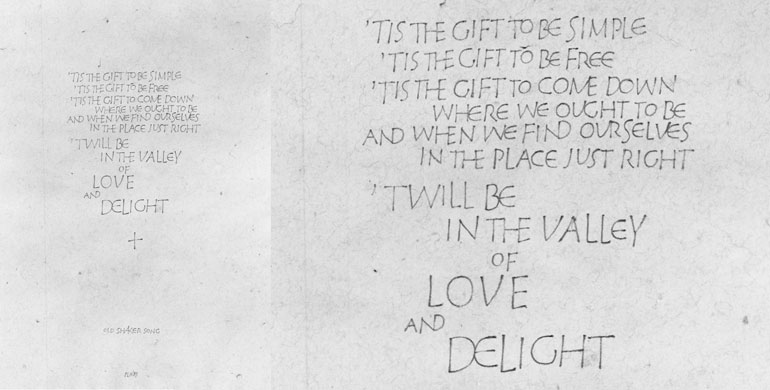 'TIS THE GIFT TO BE SIMPLE
'TIS THE GIFT TO BE FREE
'TIS THE GIFT TO COME DOWN
WHERE WE OUGHT TO BE
AND WHEN WE FIND OURSELVES
IN THE PLACE JUST RIGHT
'TWILL BE
IN THE VALLEY
OF
LOVE
AND
DELIGHT
OLD SHAKER SONG
'TIS THE GIFT TO BE SIMPLE
'TIS THE GIFT TO BE FREE
'TIS THE GIFT TO COME DOWN
WHERE WE OUGHT TO BE
AND WHEN WE FIND OURSELVES
IN THE PLACE JUST RIGHT
'TWILL BE
IN THE VALLEY
OF
LOVE
AND
DELIGHT